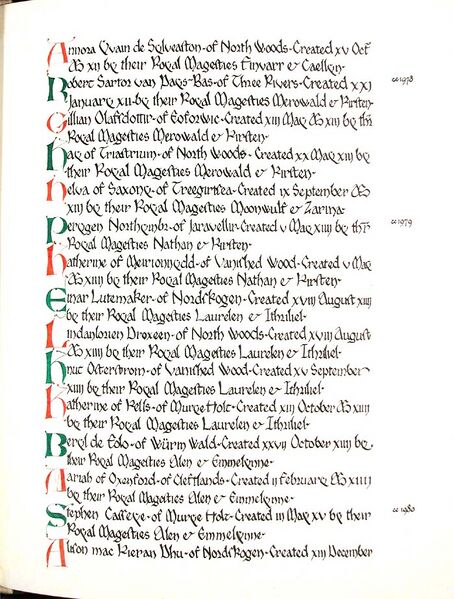 Annora Qwain de Solveaston - of North Woods - Created xv Oct
AS xii by their Royal Magesties Finvarr & Caellyn
Robert Sartor van Pags-Bas - of Three Rivers - Created xxi cc 1978
January xii - by their Royal Magesties Merowald & Kirsten
Gillian Olafsdottir - of Eoforwic - Created xiii May AS xiii by their
Royal Magesties Merowald & Kirsten
Hag of Triastrium - of North Woods - Created xx May xiii by
their Royal Magesties Merowald & Kirsten
helva of Saxony - of Treegirtsea - Created ix September AS
xiii by their Royal Magesties Moonwulf & Zarina
Peregen Northumby - of Jaravellir - Created v May xiiii by their cc 1979
Royal Magesties Nathan & Kirsten
Katherine of Meirionnydd - of Vanished Wood - Created v May
AS xiiii by their Royal Magesties Nathan & Kirsten
Einar Lutemaker - of Nordskogen - Created xviii August xiiii
by their Royal Magesties Laurelen & Ithriliel
Lindanlorien Droxeen - of North Woods - Created xviii August
AS xiiii by their Royal Magesties Laurelen & Ithriliel
Knut Osterstrom - of Vanished Wood - Created xv September
xiiii by their Royal Magesties Laurelen & Ithriliel
Katherine of Kells - of Murge Holt - Created xiii October AS xiiii
by their Royal Magesties Laurelen & Ithriliel
Beryl de Folo - of Würm Wald - Created xxvii October xiiii by
their Royal Magesties Alen & Emmelynne
Aariah of Oxenford - of Cleftlands - Created ii February AS xiiii
by their Royal Magesties Alen & Emmelynne
Stephen Casseye - of Murge Holt - Created iii May xv by their cc 1980
Royal Magesties Alen & Emmelynne
Alison mac Kieran Dhu - of Nordskogen - Created xiii December